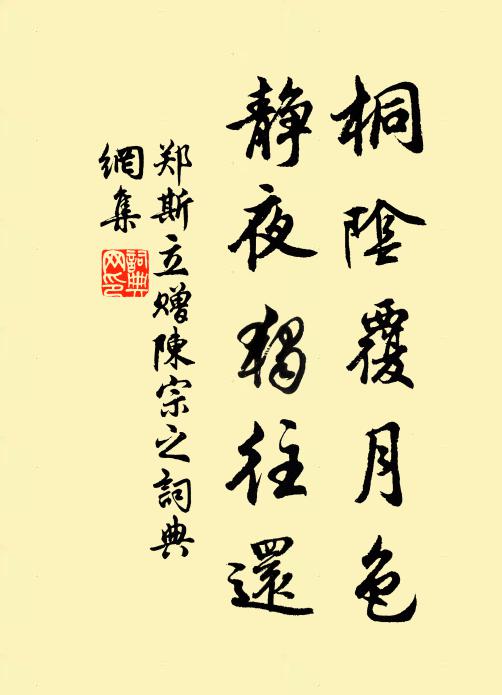 桐陰覆月色
静夜獨往還
郑斯立赠陳宗之詞典
網集
詞典
网印